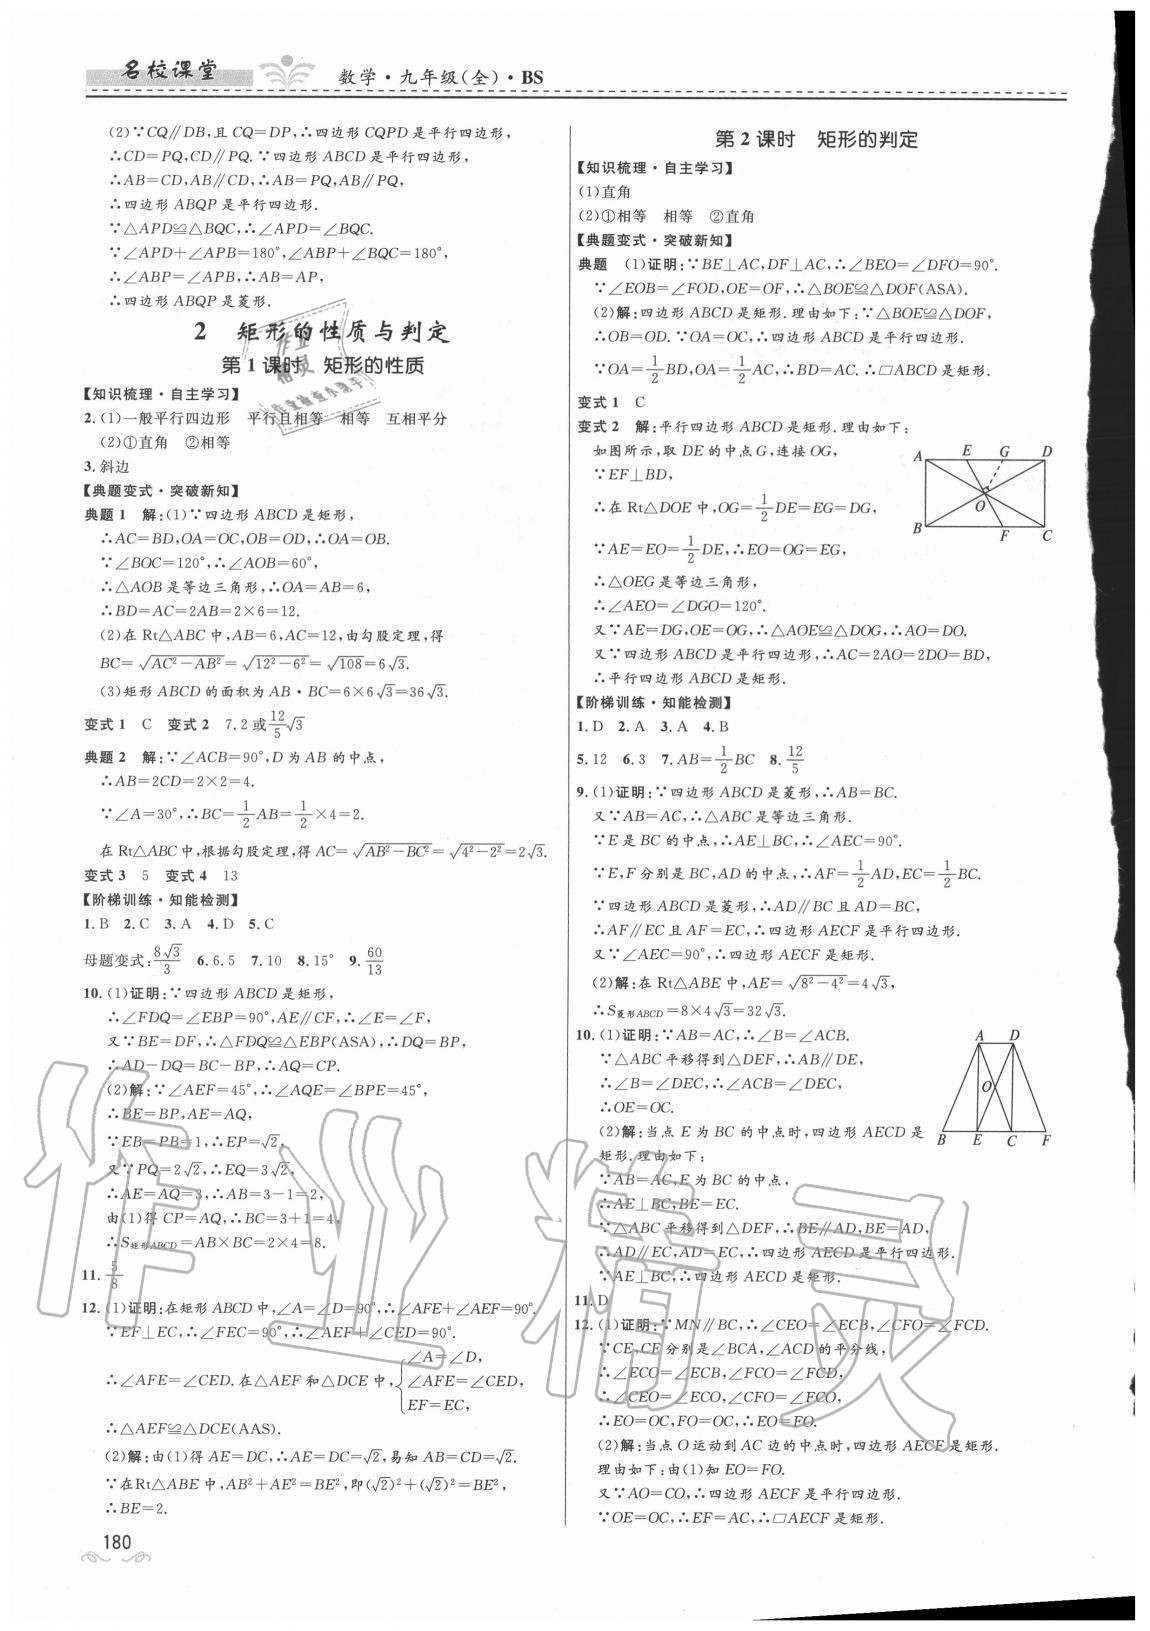 名校课堂
数学·九年级(全)·BS
(2)∵CQ∥DB,且CQ=DP,∴四边形CQPD是平行四边形,
∴CD=PQ,CD∥PQ.∵四边形ABCD是平行四边形,
∴AB=CD,AB∥CD,∴AB=PQ,AB∥PQ,
∴四边形ABQP是平行四边形.
∵△APD≌△BQC,∴∠APD=∠BQC.
∵∠APD+∠APB=180°,∠ABP+∠BQC=180°,
∴∠ABP=∠APB,∴AB=AP,
∴四边形ABQP是菱形.
2 矩形的性质与判定
第1课时 矩形的性质
【知识梳理·自主学习】
2.(1)一般平行四边形 平行且相等 相等 互相平分
(2)①直角 ②相等
3.斜边
【典题变式·突破新知】
典题1 解:(1)∵四边形ABCD是矩形,
∴AC=BD,OA=OC,OB=OD,∴OA=OB.
∵∠BOC=120°,∴∠AOB=60°,
∴△AOB是等边三角形,∴OA=AB=6,
∴BD=AC=2AB=2×6=12.
(2)在Rt△ABC中,AB=6,AC=12,由勾股定理,得
BC=√(AC²-AB²)=√(12²-6²)=√108=6√3.
(3)矩形ABCD的面积为AB·BC=6×6√3=36√3.
变式1 C 变式2 7.2或12/5√3
典题2 解:∵∠ACB=90°,D为AB的中点,
∴AB=2CD=2×2=4.
∵∠A=30°,∴BC=1/2AB=1/2×4=2.
在Rt△ABC中,根据勾股定理,得AC=√(AB²-BC²)=√(4²-2²)=2√3.
变式3 5 变式4 13
【阶梯训练·知能检测】
1.B 2.C 3.A 4.D 5.C
母题变式:8√3/3 6.6.5 7.10 8.15° 9.60/13
10.(1)证明:∵四边形ABCD是矩形,
∴∠FDQ=∠EBP=90°,AE∥CF,∴∠E=∠F,
又∵BE=DF,∴△FDQ≌△EBP(ASA),∴DQ=BP,
∴AD-DQ=BC-BP,∴AQ=CP.
(2)解:∵∠AEF=45°,∴∠AQE=∠BPE=45°,
∴BE=BP,AE=AQ,
∵EB=PB=1,∴EP=√2,
又∵PQ=2√2,∴EQ=3√2,
∴AE=AQ=3,∴AB=3-1=2,
由(1)得CP=AQ,∴BC=3+1=4,
∴S矩形ABCD=AB×BC=2×4=8.
11.5/8
12.(1)证明:在矩形ABCD中,∠A=∠D=90°,∴∠AFE+∠AEF=90°.
∵EF⊥EC,∴∠FEC=90°,∴∠AEF+∠CED=90°.
∴∠AFE=∠CED.在△AEF和△DCE中,{∠A=∠D,
∠AFE=∠CED,
EF=EC,
∴△AEF≌△DCE(AAS).
(2)解:由(1)得AE=DC,∴AE=DC=√2,易知AB=CD=√2.
∵在Rt△ABE中,AB²+AE²=BE²,即(√2)²+(√2)²=BE²,
∴BE=2.
180
第2课时 矩形的判定
【知识梳理·自主学习】
(1)直角
(2)①相等 相等 ②直角
【典题变式·突破新知】
典题 (1)证明:∵BE⊥AC,DF⊥AC,∴∠BEO=∠DFO=90°.
∵∠EOB=∠FOD,OE=OF,∴△BOE≌△DOF(ASA).
(2)解:四边形ABCD是矩形.理由如下:∵△BOE≌△DOF,
∴OB=OD.∵OA=OC,∴四边形ABCD是平行四边形.
∵OA=1/2BD,OA=1/2AC,∴BD=AC.∴□ABCD是矩形.
变式1 C
变式2 解:平行四边形ABCD是矩形.理由如下:
如图所示,取DE的中点G,连接OG,
∵EF⊥BD,
∴在Rt△DOE中,OG=1/2DE=EG=DG,
∵AE=EO=1/2DE,∴EO=OG=EG,
∴△OEG是等边三角形,
∴∠AEO=∠DGO=120°.
又∵AE=DG,OE=OG,∴△AOE≌△DOG,∴AO=DO.
又∵四边形ABCD是平行四边形,∴AC=2AO=2DO=BD,
∴平行四边形ABCD是矩形.
A E G D
O
B F C
【阶梯训练·知能检测】
1.D 2.A 3.A 4.B
5.12 6.3 7.AB=1/2BC 8.12/5
9.(1)证明:∵四边形ABCD是菱形,∴AB=BC.
又∵AB=AC,∴△ABC是等边三角形.
∵E是BC的中点,∴AE⊥BC,∴∠AEC=90°.
∵E,F分别是BC,AD的中点,∴AF=1/2AD,EC=1/2BC.
∵四边形ABCD是菱形,∴AD∥BC且AD=BC,
∴AF∥EC且AF=EC,∴四边形AECF是平行四边形.
又∵∠AEC=90°,∴四边形AECF是矩形.
(2)解:在Rt△ABE中,AE=√(8²-4²)=4√3,
∴S菱形ABCD=8×4√3=32√3.
10.(1)证明:∵AB=AC,∴∠B=∠ACB.
∵△ABC平移得到△DEF,∴AB∥DE,
∴∠B=∠DEC,∴∠ACB=∠DEC,
∴OE=OC.
(2)解:当点E为BC的中点时,四边形AECD是
矩形.理由如下:
∵AB=AC,E为BC的中点,
∴AE⊥BC,BE=EC.
∵△ABC平移得到△DEF,∴BE∥AD,BE=AD,
∴AD∥EC,AD=EC,∴四边形AECD是平行四边形.
∵AE⊥BC,∴四边形AECD是矩形.
A D
O
B E C F
11.D
12.(1)证明:∵MN∥BC,∴∠CEO=∠ECB,∠CFO=∠FCD.
∵CE,CF分别是∠BCA,∠ACD的平分线,
∴∠ECO=∠ECB,∠FCO=∠FCD,
∴∠CEO=∠ECO,∠CFO=∠FCO,
∴EO=OC,FO=OC,∴EO=FO.
(2)解:当点O运动到AC边的中点时,四边形AECF是矩形.
理由如下:由(1)知EO=FO.
又∵AO=CO,∴四边形AECF是平行四边形.
∵OE=OC,∴EF=AC,∴□AECF是矩形.
作业精灵